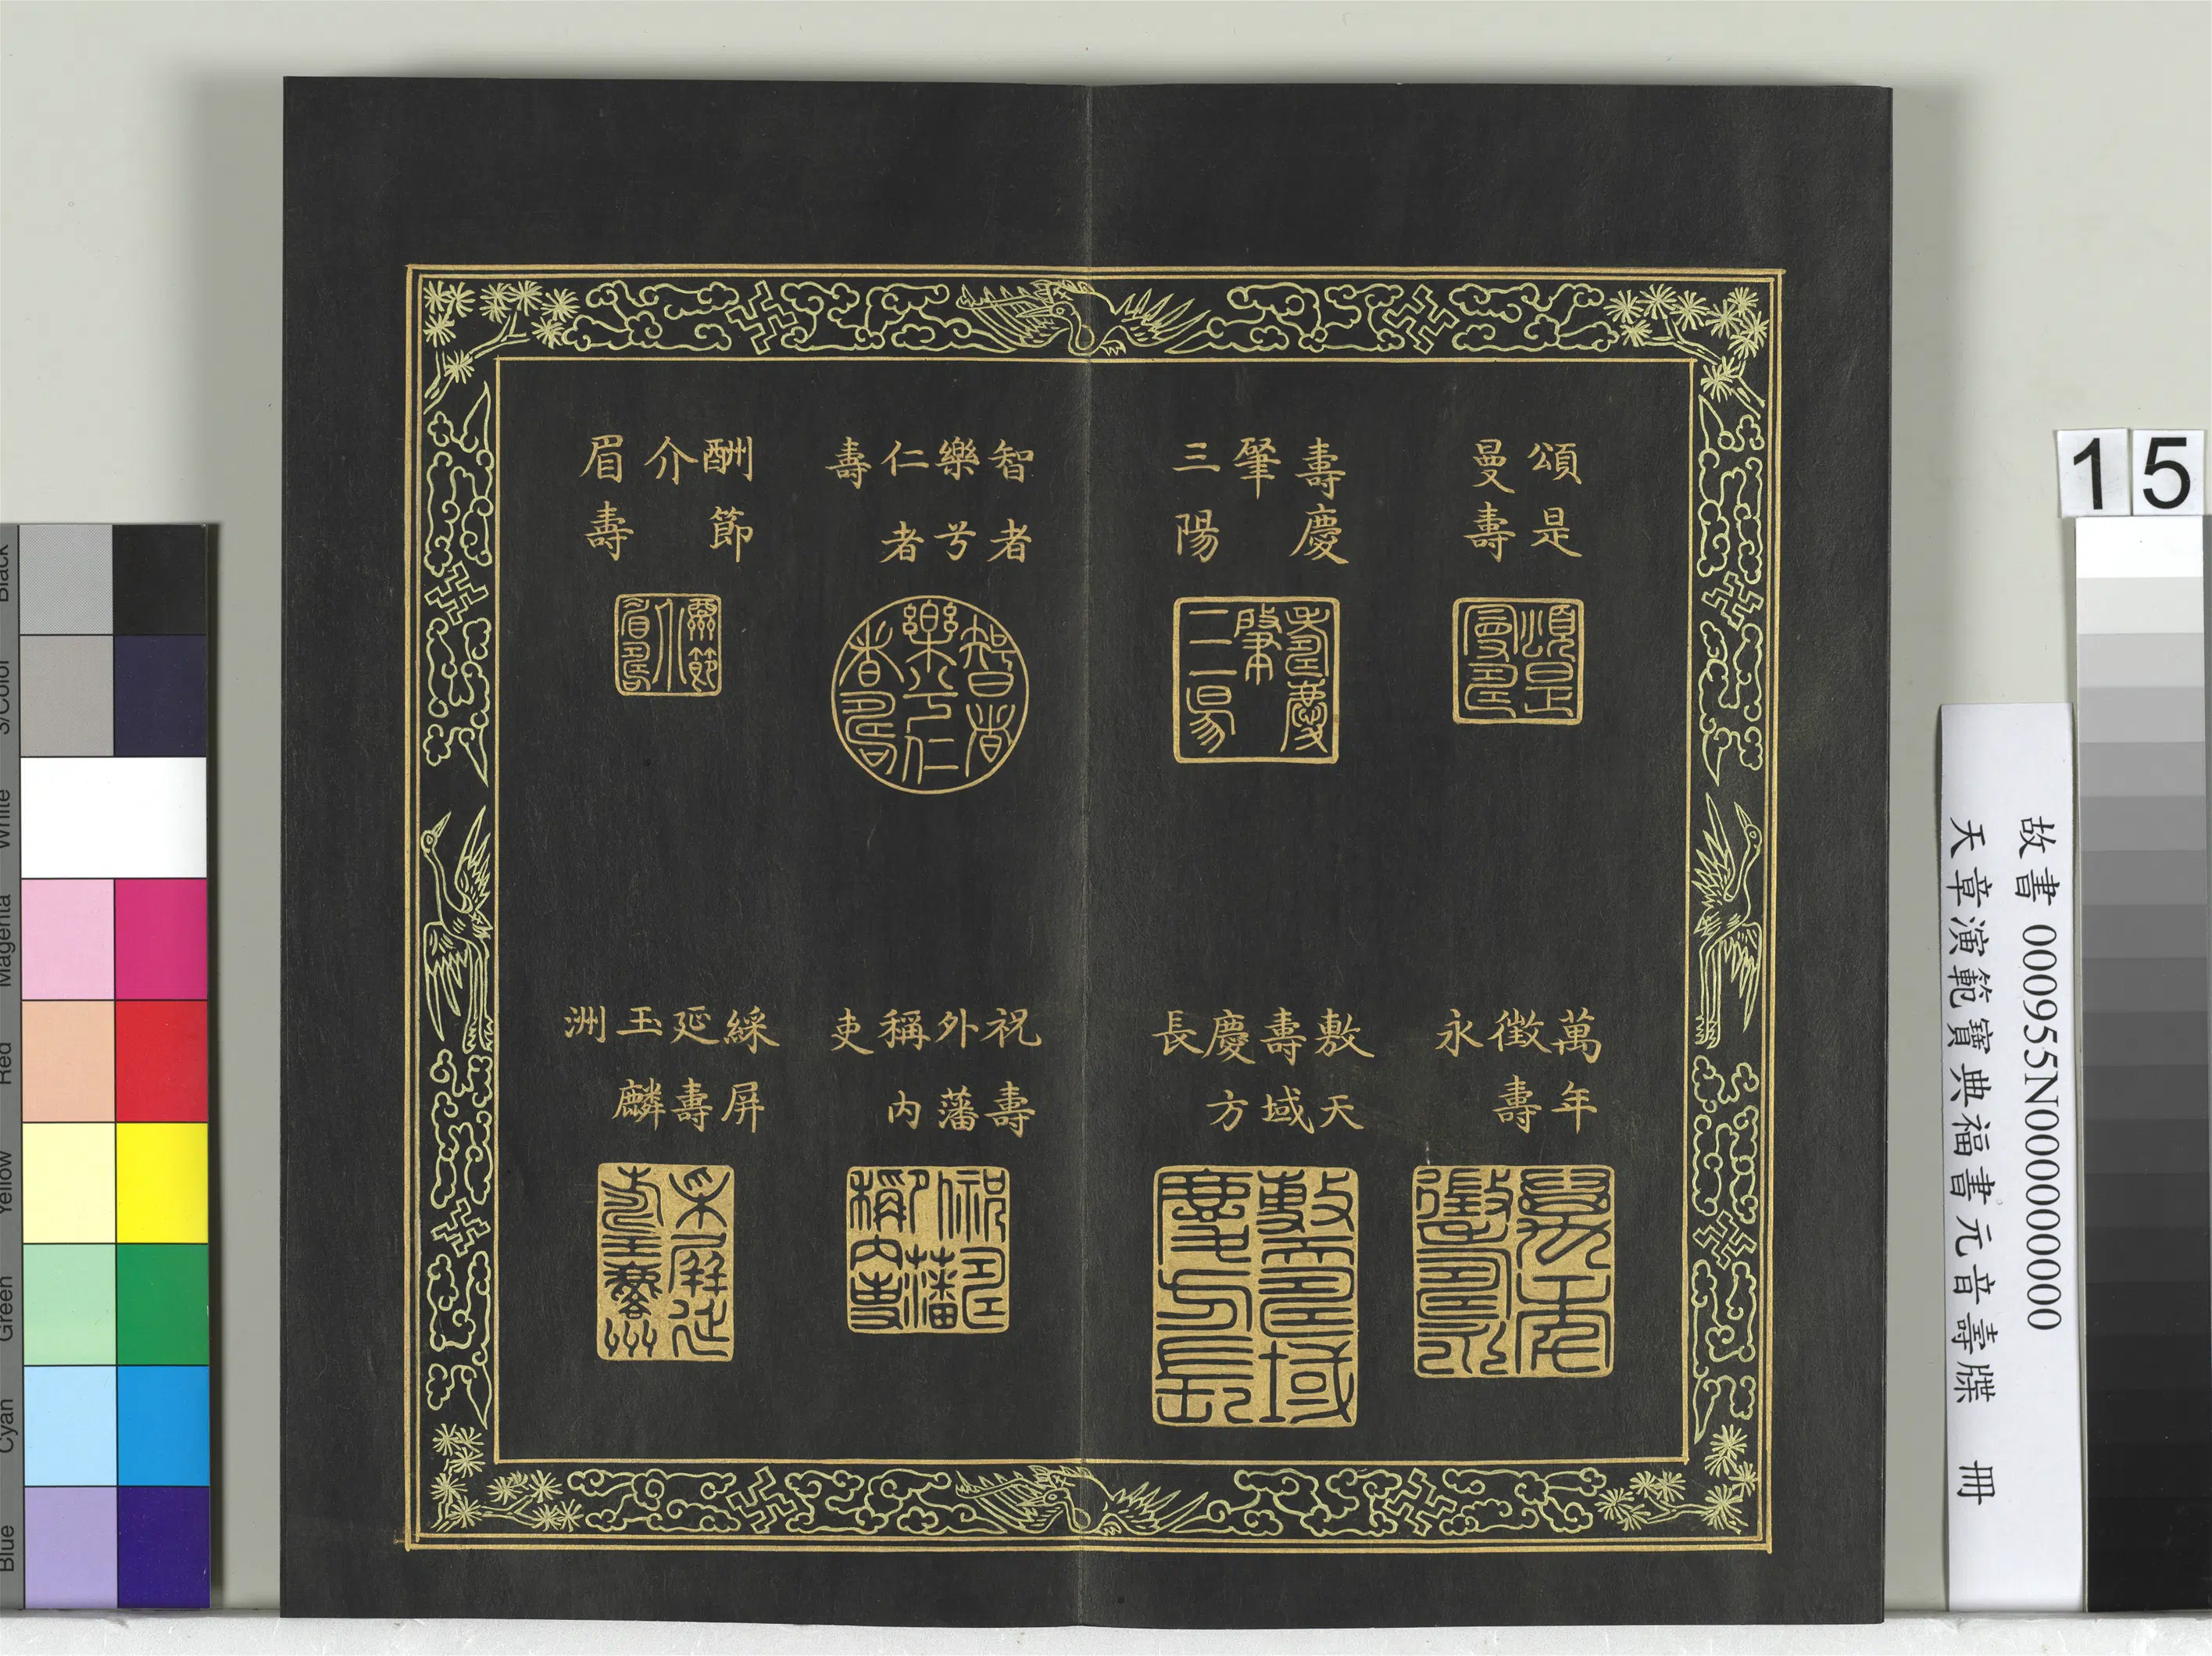 頌是
曼壽
壽慶
肇
三陽
智者
樂兮
仁者
壽
酬節
介
眉壽
萬年
徵壽
永
敷天
壽域
慶方
長
祝壽
外藩
稱內
吏
綵屏
延壽
玉麟
洲
15
故書 000955N000000000
天章演範寶典福書元音壽牒 冊
Black
3/Color
White
Magenta
Red
Yellow
Green
Cyan
Blue